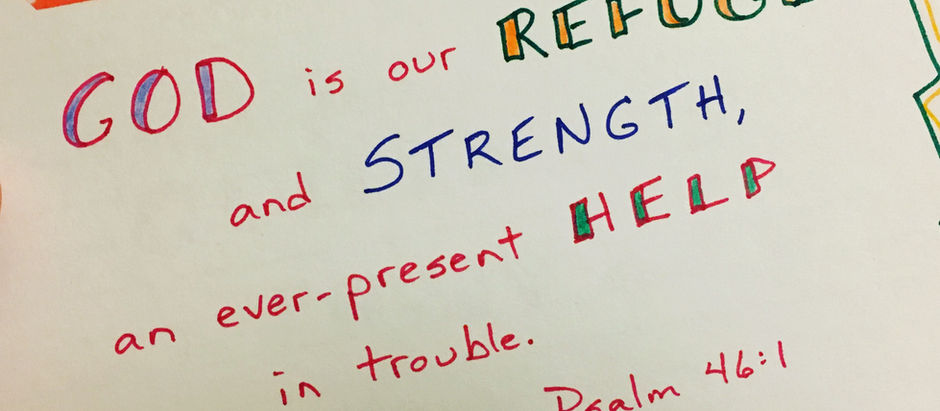 GOD is our REFUGE
and STRENGTH,
an ever-present HELP
in trouble.
Psalm 46:1